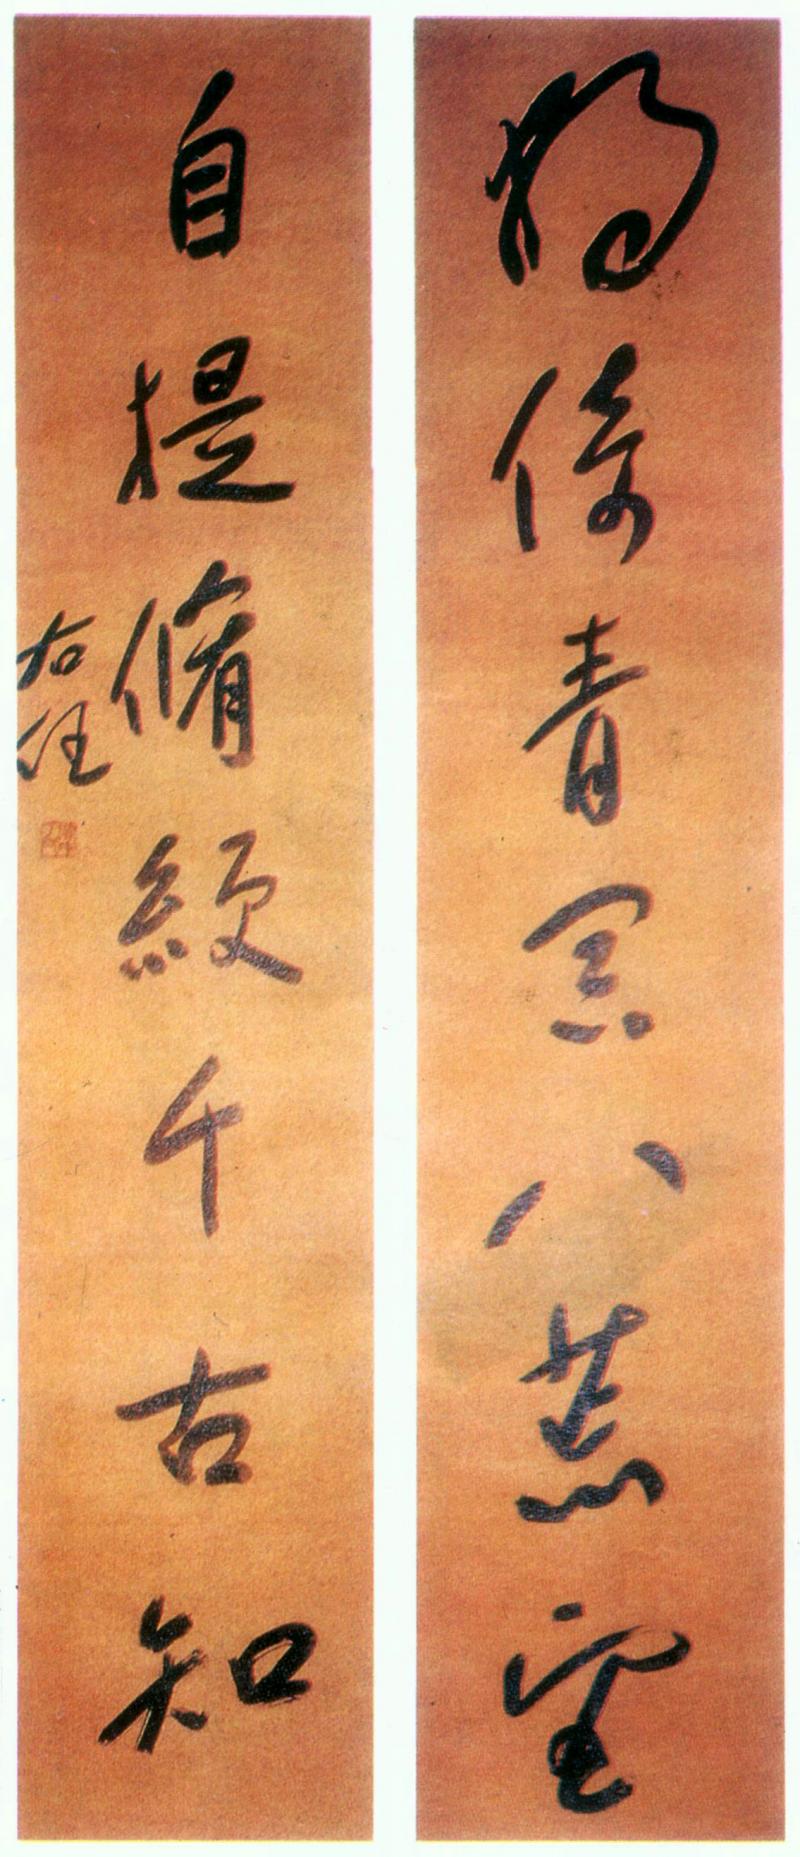 獨倚青冥八荒望
自提脩綆千古知
右任